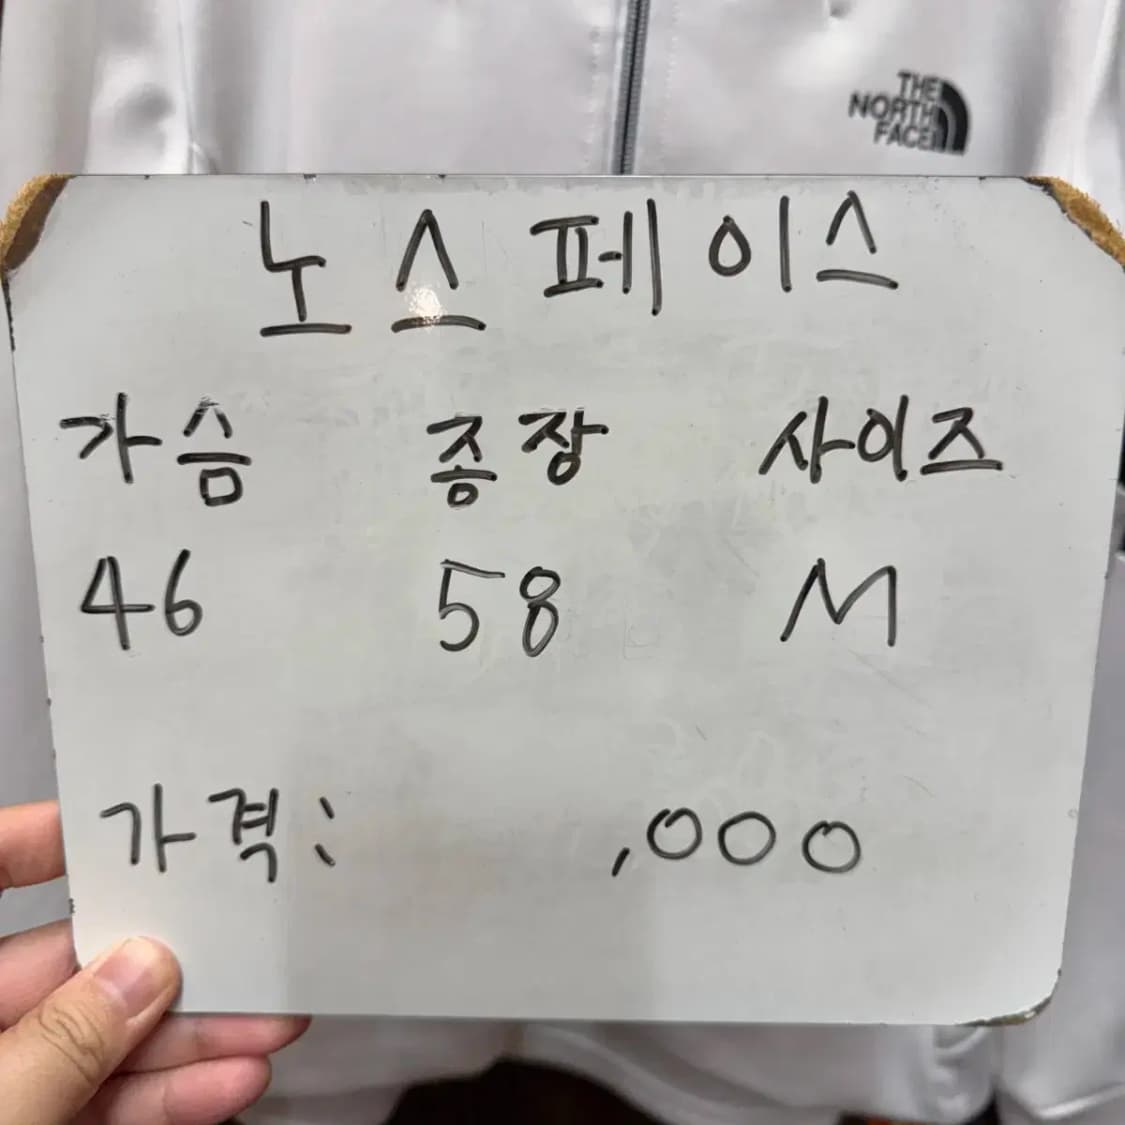 THE
NORTH
FACE
노스페이스
가슴 종장 사이즈
46 58 M
가격: ,000